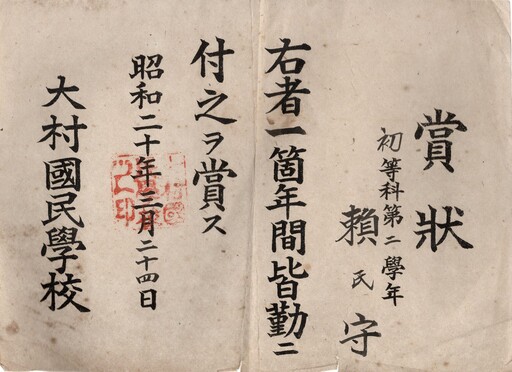 賞狀
初等科第二學年
賴氏守
右者一箇年間皆勤ニ
付之ヲ賞ス
昭和二十年三月二十四日
大村國民學校